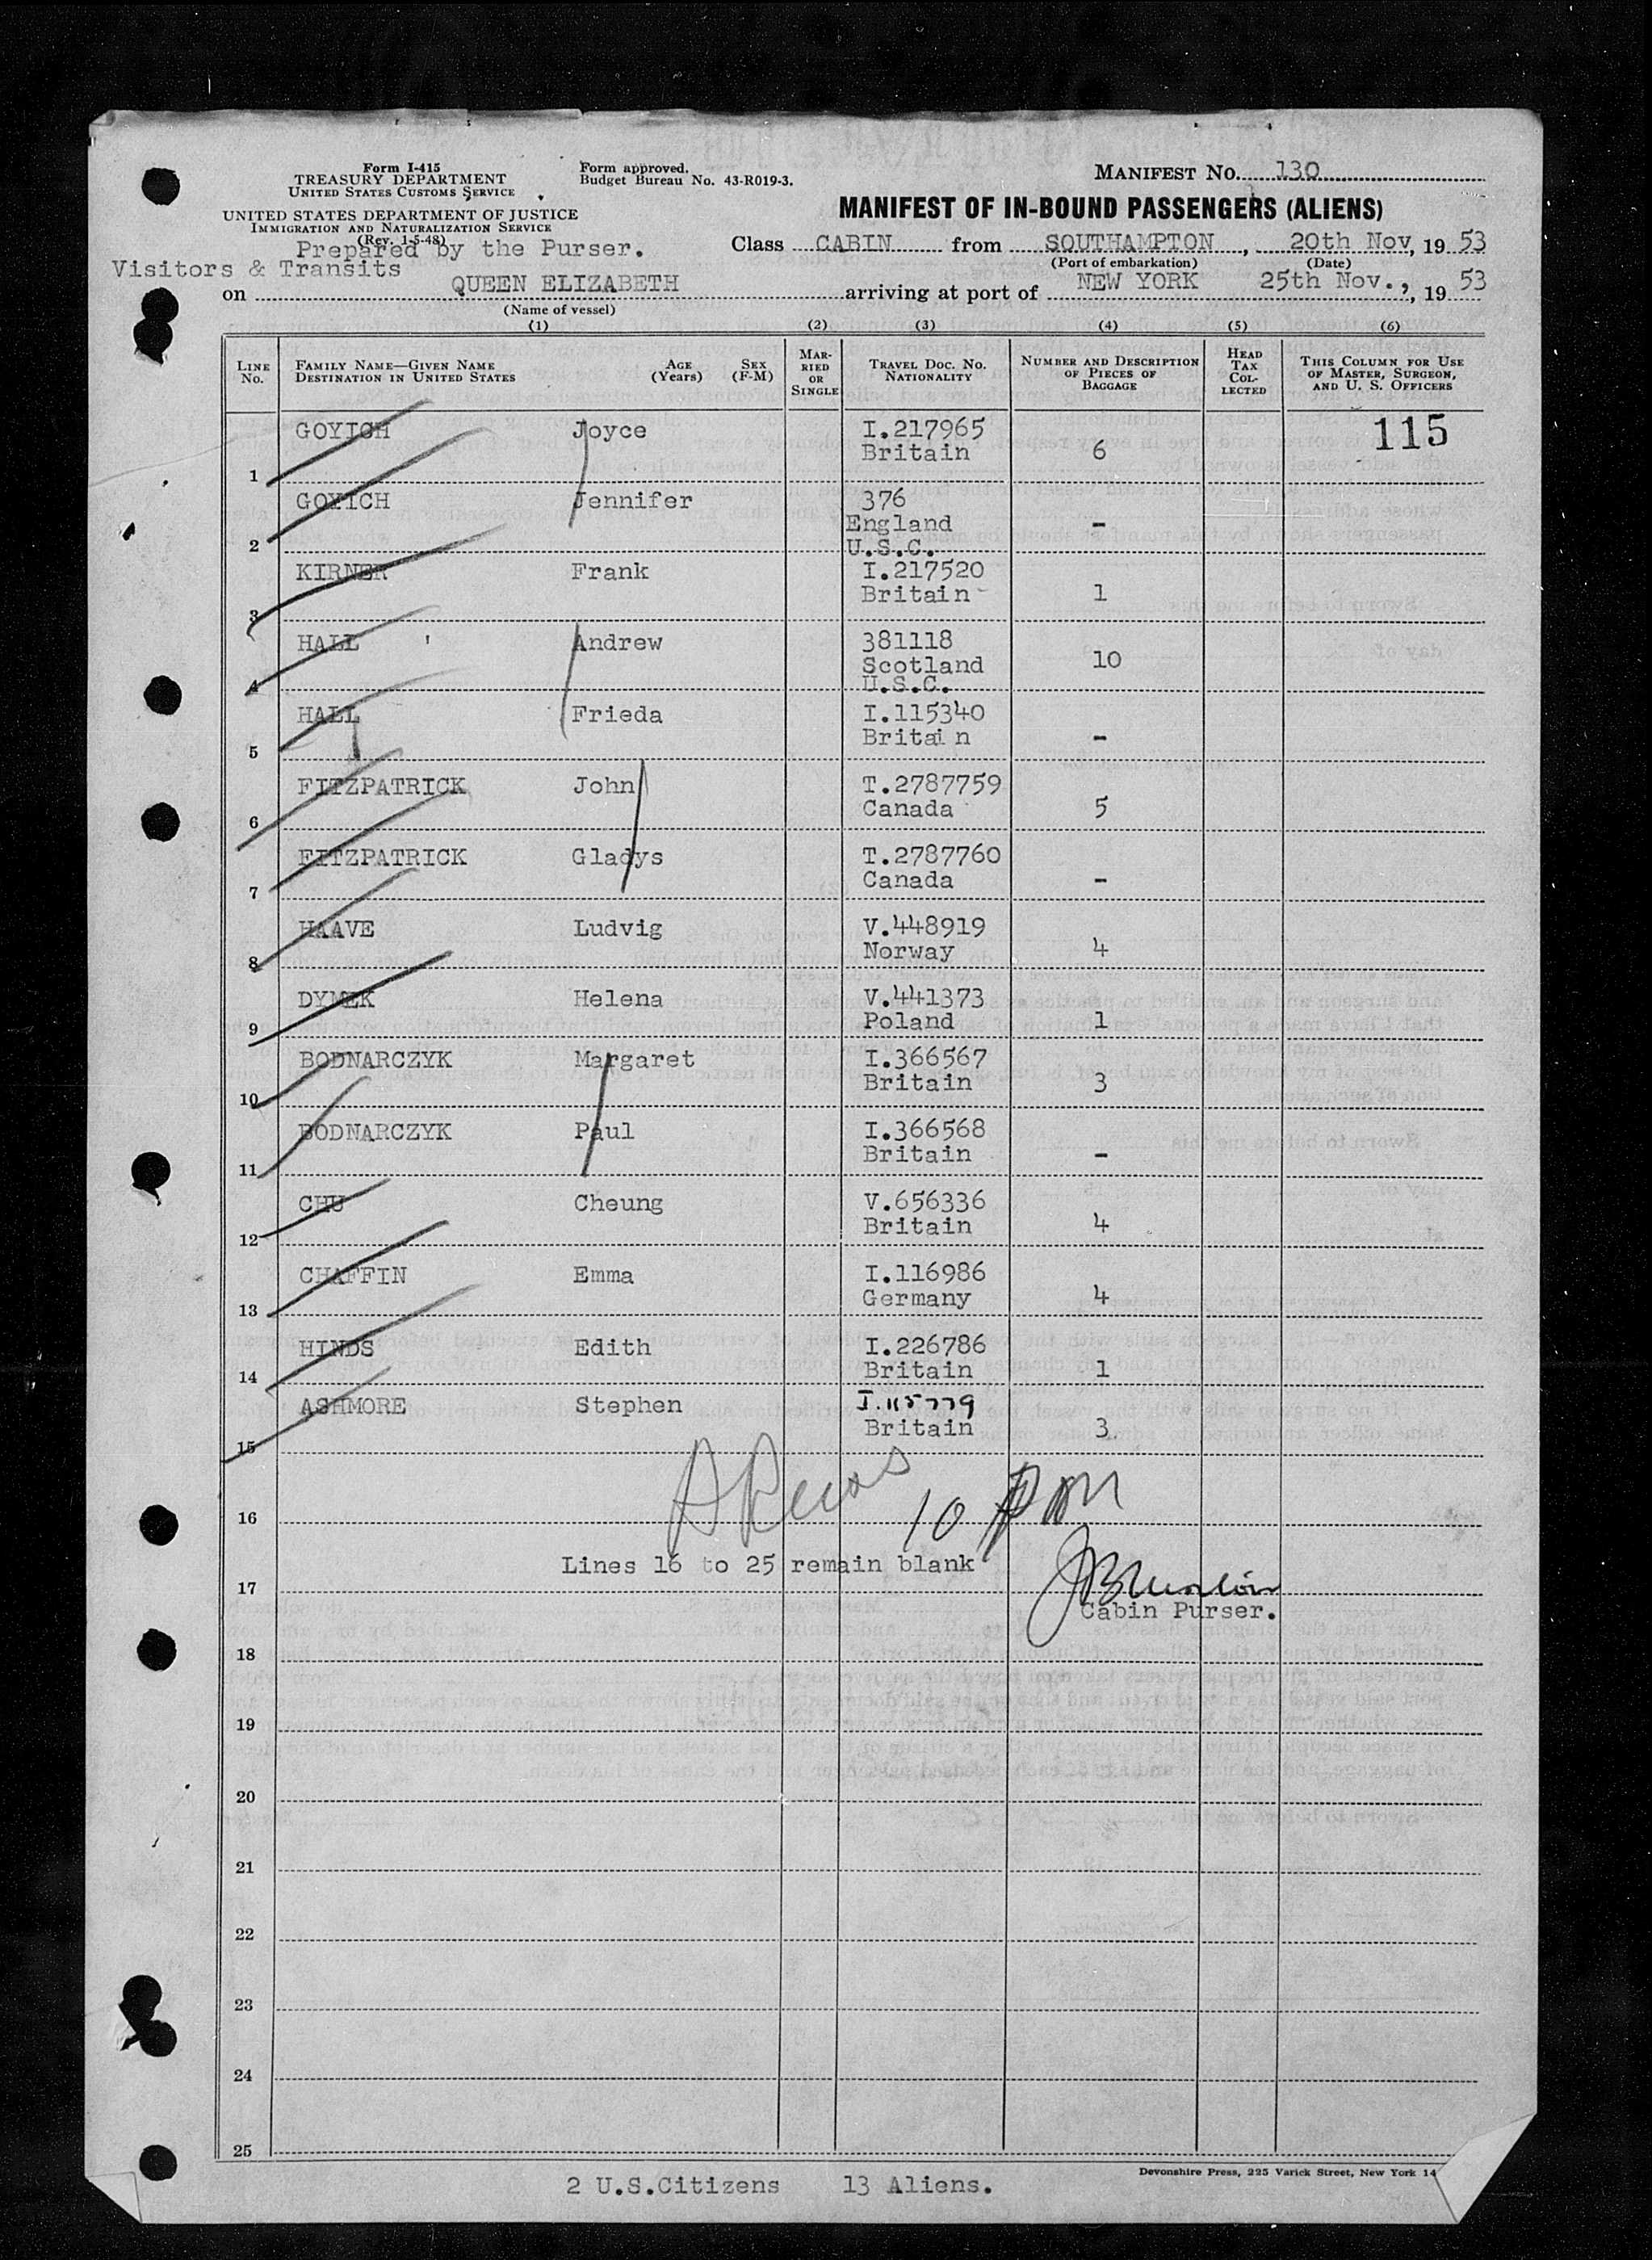 Form I-415
TREASURY DEPARTMENT
UNITED STATES CUSTOMS SERVICE
UNITED STATES DEPARTMENT OF JUSTICE
IMMIGRATION AND NATURALIZATION SERVICE
(Rev. 1-5-48)
Form approved.
Budget Bureau No. 43-R019-3.
MANIFEST NO. 130
MANIFEST OF IN-BOUND PASSENGERS (ALIENS)
Prepared by the Purser.
Class CABIN from SOUTHAMPTON, 20th Nov, 19 53
(Port of embarkation) (Date)
Visitors & Transits
on QUEEN ELIZABETH arriving at port of NEW YORK 25th Nov., 19 53
(Name of vessel)
(1) (2) (3) (4) (5) (6)
LINE No. FAMILY NAME—GIVEN NAME DESTINATION IN UNITED STATES AGE (Years) SEX (F-M) MARRIED OR SINGLE TRAVEL DOC. NO. NATIONALITY NUMBER AND DESCRIPTION OF PIECES OF BAGGAGE HEAD TAX COLLECTED THIS COLUMN FOR USE OF MASTER, SURGEON, AND U. S. OFFICERS
115
1 GOYICH Joyce I.217965 Britain 6
2 GOYICH Jennifer 376 England U.S.C. -
3 KIRNER Frank I.217520 Britain 1
4 HALL Andrew 381118 Scotland U.S.C. 10
5 HALL Frieda I.115340 Britain -
6 FITZPATRICK John T.2787759 Canada 5
7 FITZPATRICK Gladys T.2787760 Canada -
8 HAAVE Ludvig V.448919 Norway 4
9 DYMEK Helena V.441373 Poland 1
10 BODNARCZYK Margaret I.366567 Britain 3
11 BODNARCZYK Paul I.366568 Britain -
12 CHU Cheung V.656336 Britain 4
13 CHAFFIN Emma I.116986 Germany 4
14 HINDS Edith I.226786 Britain 1
15 ASHMORE Stephen I.115779 Britain 3
16
10
Lines 16 to 25 remain blank
17
Cabin Purser.
18
19
20
21
22
23
24
25
Devonshire Press, 225 Varick Street, New York 14
2 U.S.Citizens 13 Aliens.